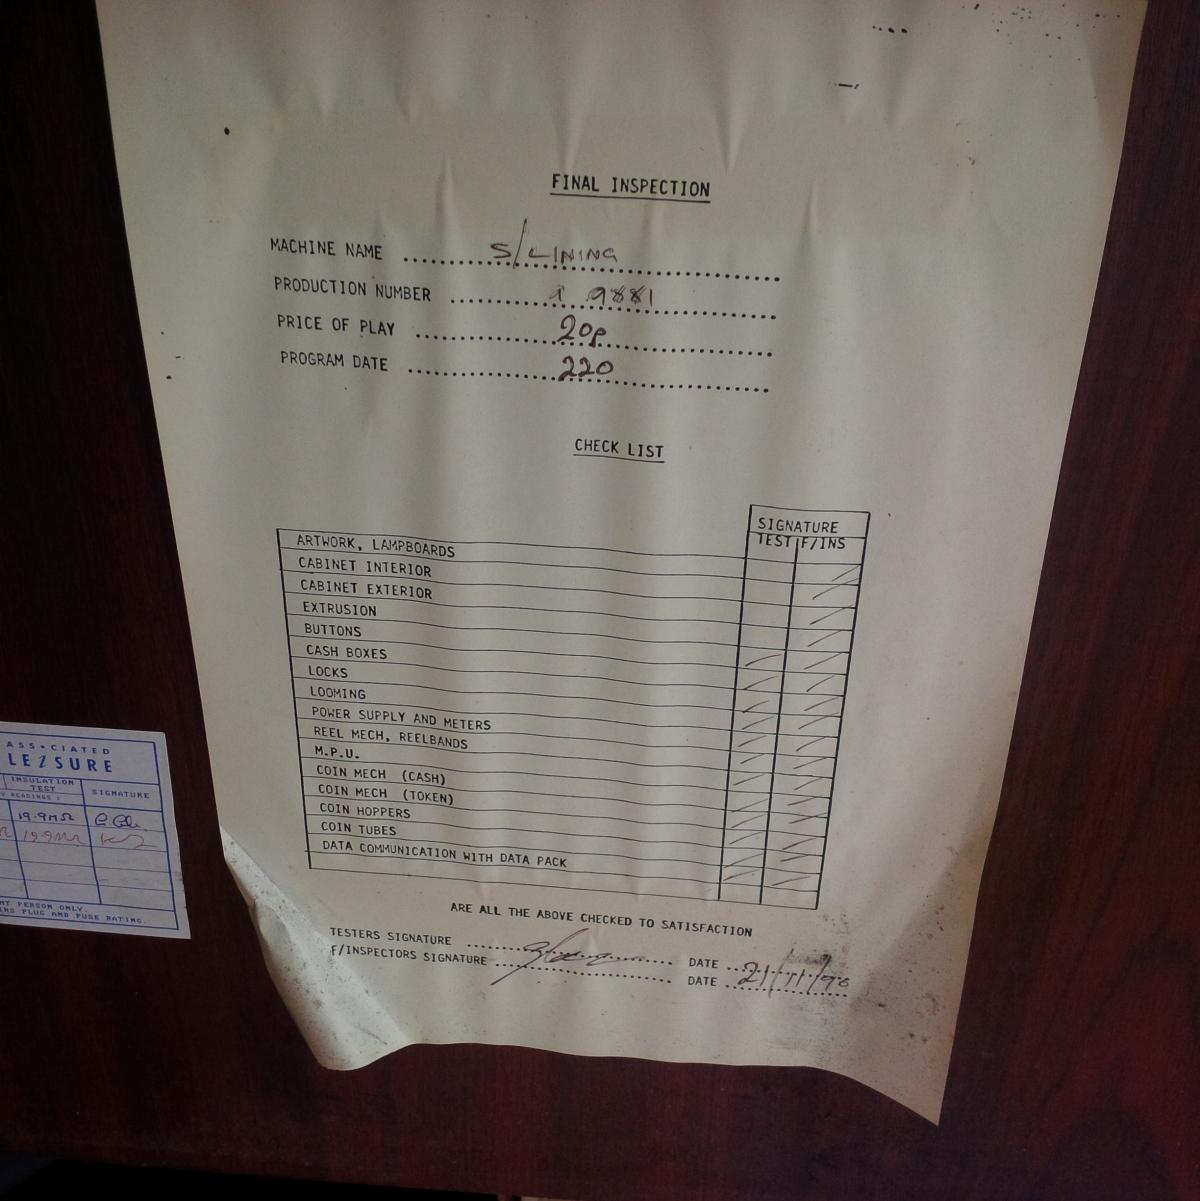 FINAL INSPECTION
MACHINE NAME S/LINING
PRODUCTION NUMBER 9881
PRICE OF PLAY 20p
PROGRAM DATE 220
CHECK LIST
SIGNATURE
TEST F/INS
ARTWORK, LAMPBOARDS
CABINET INTERIOR
CABINET EXTERIOR
EXTRUSION
BUTTONS
CASH BOXES
LOCKS
LOOMING
POWER SUPPLY AND METERS
REEL MECH, REELBANDS
M.P.U.
COIN MECH (CASH)
COIN MECH (TOKEN)
COIN HOPPERS
COIN TUBES
DATA COMMUNICATION WITH DATA PACK
ARE ALL THE ABOVE CHECKED TO SATISFACTION
TESTERS SIGNATURE DATE
F/INSPECTORS SIGNATURE DATE 21/11/90
ASSOCIATED
LEISURE
INSULATION
TEST
READINGS: SIGNATURE
19.9MΩ
19.9MΩ
PERSON ONLY.
PLUG AND FUSE RATING.